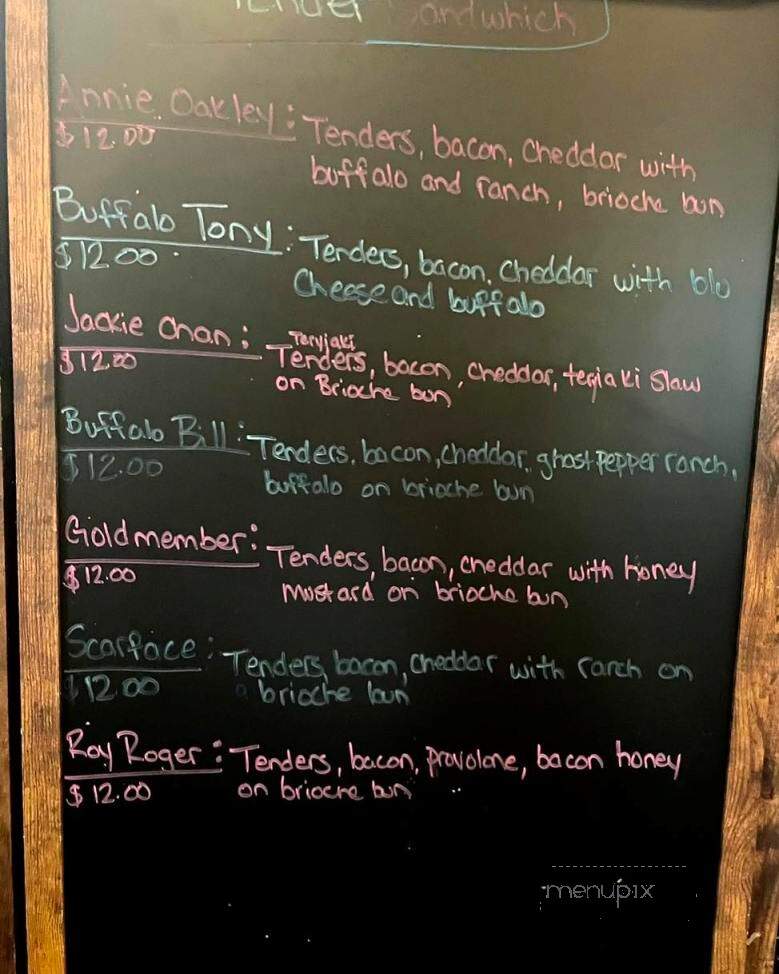 Tender Sandwhich
Annie Oakley: Tenders, bacon, cheddar with
$12.00
buffalo and ranch, brioche bun
Buffalo Tony: Tenders, bacon, cheddar with blu
$12.00
Cheese and buffalo
Jackie Chan: Teryjaki
Tenders, bacon, cheddar, teriaki Slaw
$12.00
on Brioche bun
Buffalo Bill: Tenders, bacon, cheddar, ghost pepper ranch,
$12.00
buffalo on brioche bun
Goldmember: Tenders, bacon, cheddar with honey
$12.00
mustard on brioche bun
Scarface: Tenders, bacon, cheddar with ranch on
$12.00
a brioche bun
Roy Roger: Tenders, bacon, provolone, bacon honey
$12.00
on brioche bun
menupix